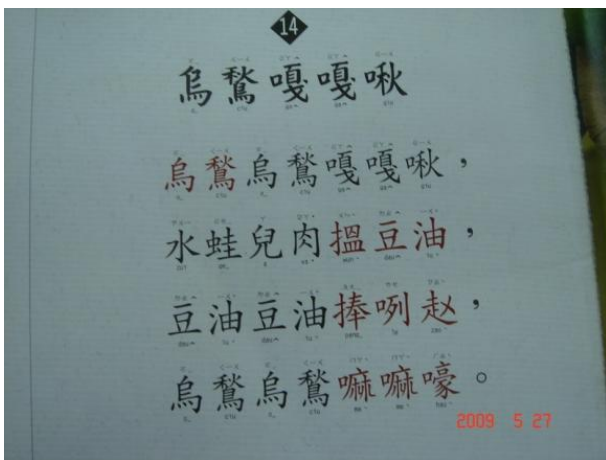 14
烏鶖嘎嘎啾
烏鶖烏鶖嘎嘎啾，
水蛙兒肉搵豆油，
豆油豆油捧咧赵，
烏鶖烏鶖嘛嘛嚎。
2009 5 27